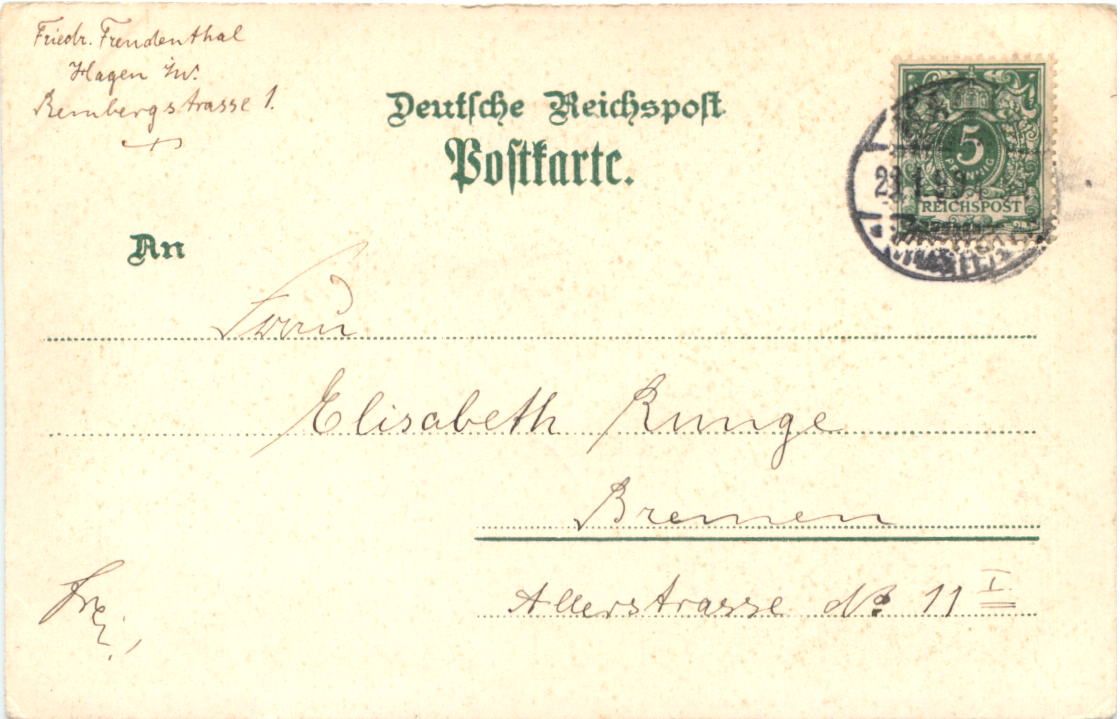 Friedr. Freudenthal
Hagen i/w.
Rembergstrasse 1.
Deutsche Reichspost
Postkarte.
5
PFENNIG
REICHSPOST
An
Frau
Elisabeth Runge
Bremen
Allerstrasse No 11 I
Frei.